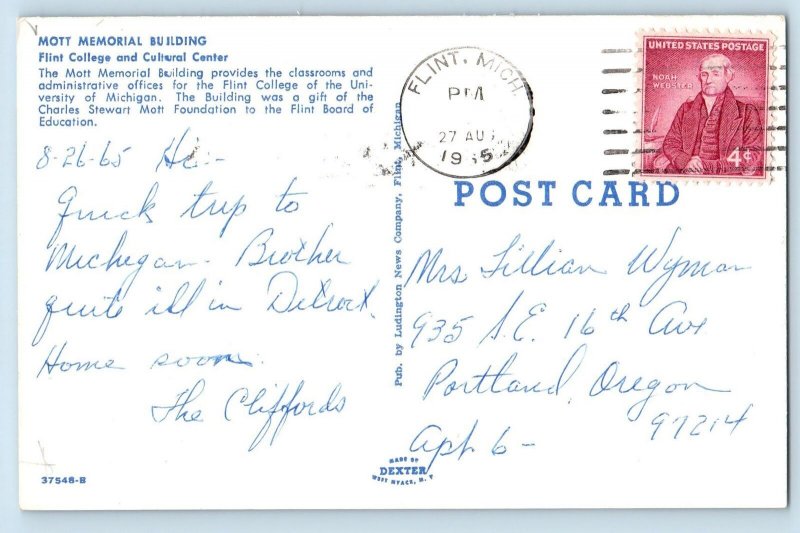 MOTT MEMORIAL BUILDING
Flint College and Cultural Center
The Mott Memorial Building provides the classrooms and
administrative offices for the Flint College of the Uni-
versity of Michigan. The Building was a gift of the
Charles Stewart Mott Foundation to the Flint Board of
Education.
8-26-65 Hi:-
Quick trip to
Michegan. Brother
quite ill in Detroit.
Home soon.
The Cliffords
37548-B
Pub. by Ludington News Company, Flint, Michigan
FLINT, MICH
PM
27 AUG
1965
UNITED STATES POSTAGE
NOAH
WEBSTER
4¢
POST CARD
Mrs Lillian Wyman
935 S.E. 16th Ave
Portland, Oregon
97214
Apt 6-
MADE BY
DEXTER
WEST NYACK, N. Y.